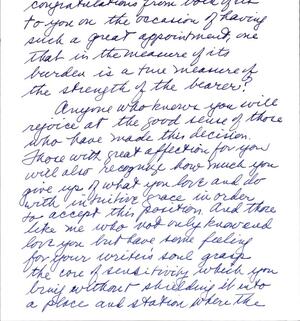 congratulations from both of us
to you on the occasion of having
such a great appointment, one
that in the measure of its
burden is a true measure of
the strength of the bearer?
Anyone who knows you will
rejoice at the good sense of those
who have made this decision.
Those with great affection for you
will also recognize how much you
give up of what you love and do
with intuitive grace in order
to accept this position. And those
like me who not only know and
love you but have some feeling
for your writer's soul grasp
the core of sensitivity which you
bring without shielding it into
a place and station where the